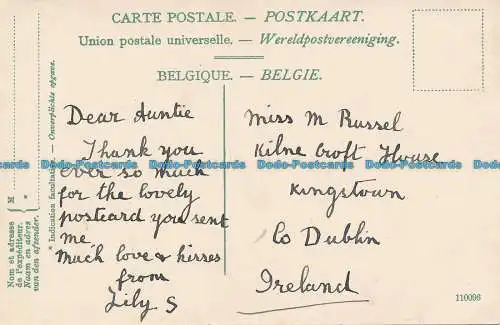 CARTE POSTALE. — POSTKAART.
Union postale universelle. — Wereldpostvereeniging.
BELGIQUE. — BELGIE.
Dear Auntie
Thank you
ever so much
for the lovely
postcard you sent
me
Much love & kisses
from
Lily S
Miss M Russel
Kilne Croft House
Kingstown
Co Dublin
Ireland
110096
* Indication facultative. — Onverplichte opgave.
M *
Nom et adresse
de l'expéditeur.
Naam en adres
van den afzender.
Dodo-Postcards Dodo-Postcards Dodo-Postcards Dodo-Postcards Dodo-Postcards